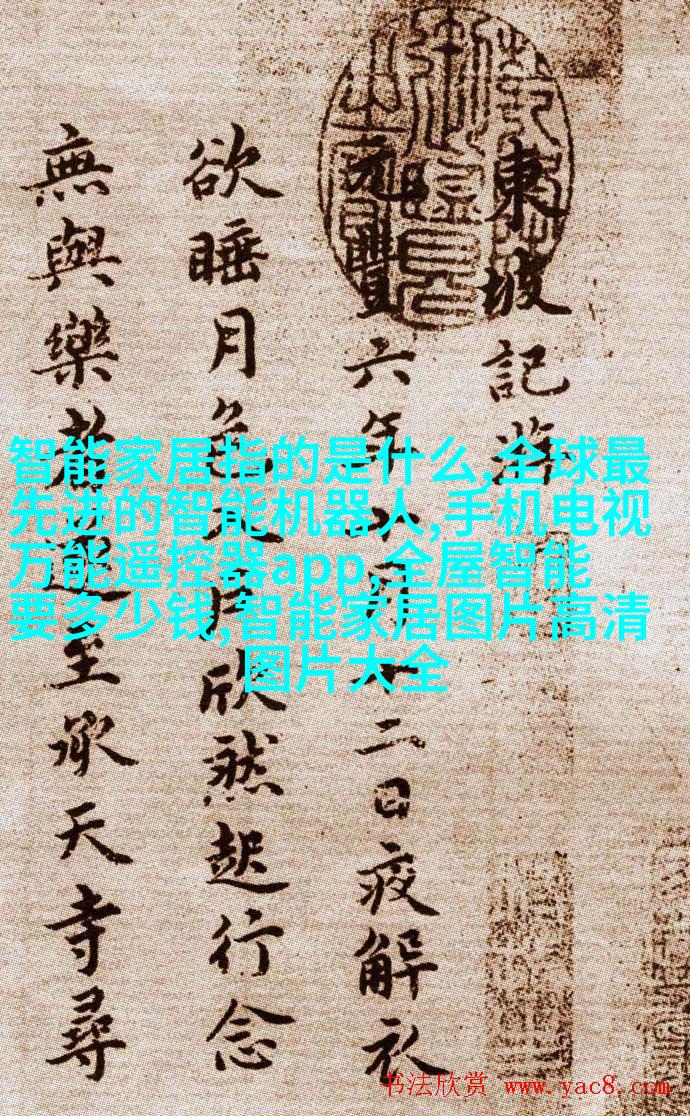 東坡記游
元豐六年十月十二日夜解衣
欲睡月色入户欣然起行念
無與樂者遂至承天寺尋
智能家居指的是什么,全球最
先进的智能机器人,手机电视
万能遥控器app,全屋智能
要多少钱,智能家居图片高清
图片大全
书法欣赏 www.yac8.com